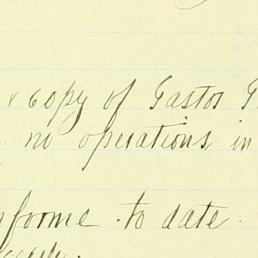 copy of Gastos G
no operations in
informe to date.